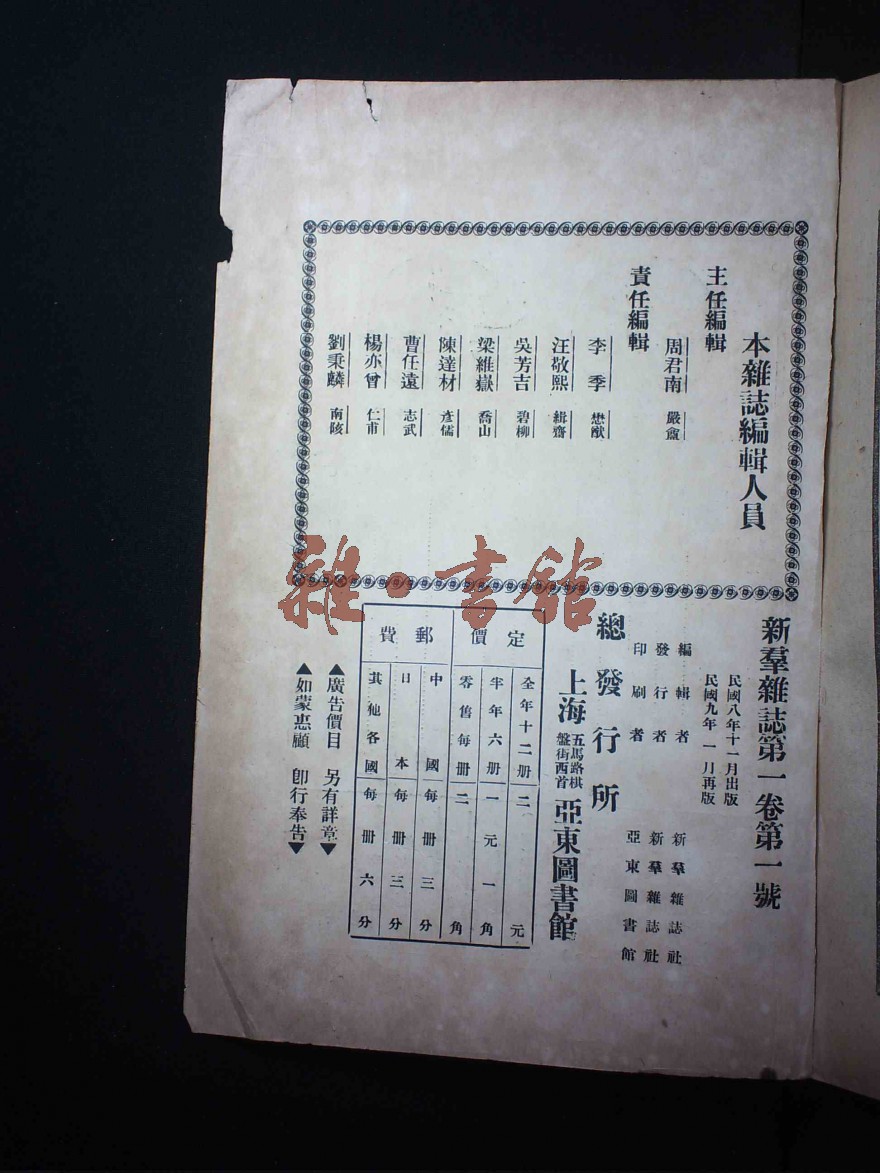 本雜誌編輯人員
主任編輯
周君南 嚴龕
責任編輯
李季 懋猷
汪敬熙 緝齋
吳芳吉 碧柳
梁維嶽 喬山
陳達材 彥儒
曹任遠 志武
楊亦曾 仁甫
劉秉麟 南陔
新羣雜誌第一卷第一號
民國八年十一月出版
民國九年一月再版
編輯者 新羣雜誌社
發行者 新羣雜誌社
印刷者 亞東圖書館
總發行所
上海 五馬路棋盤街西首 亞東圖書館
定價
全年十二册 二元
半年六册 一元一角
零售每册 二角
郵費
中國 每册三分
日本 每册三分
其他各國 每册六分
▲廣告價目 另有詳章▼
▲如蒙惠顧 卽行奉告▼
雜·書館